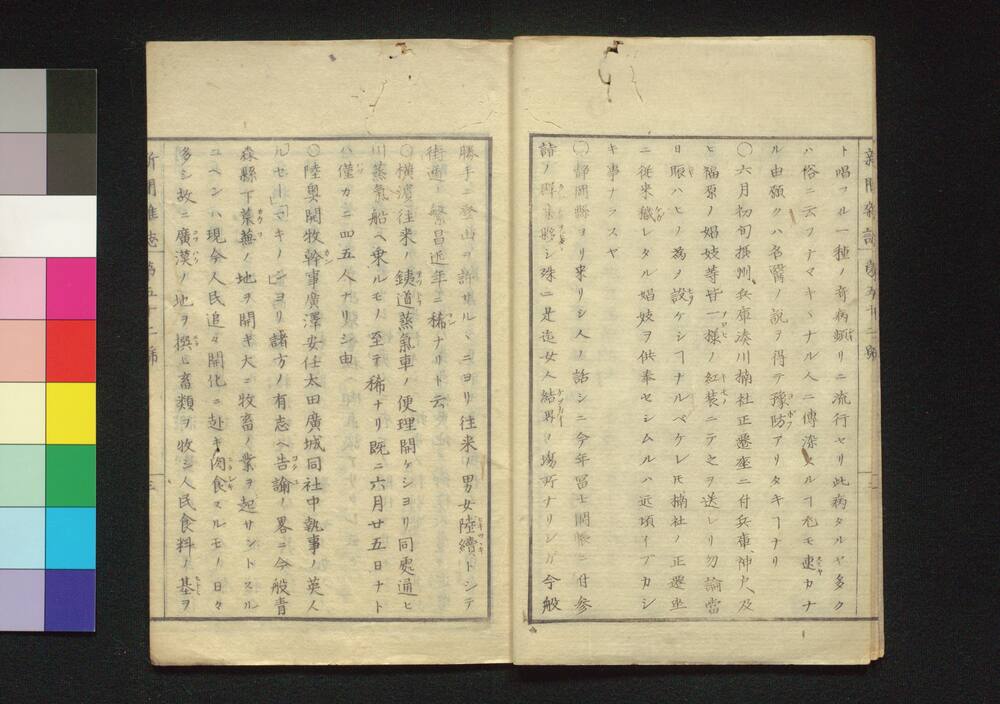 新聞雜誌 第五十二號
ト唱フル一種ノ奇病頻リニ流行セリ此病タルヤ多ク
ハ俗ニ云フナマキヽナル人ニ傳染スルヿ尤モ速カナ
ル由願クハ名醫ノ説ヲ得テ豫防アリタキヿナリ
〇六月初旬攝州兵庫湊川楠社正遷座ニ付兵庫神戸及
ヒ福原ノ娼妓等皆一樣ノ紅裝ニテ之ヲ送レリ勿論當
日賑ハヒノ為メ設ケシヿナルベケレ𪜈楠社ノ正遷坐
ニ従来穢レタル娼妓ヲ供奉セシムルハ近頃イブカシ
キ事ナラスヤ
〇静岡縣ヨリ来リシ人ノ話シニ今年冨士開帳ニ付参
詣ノ群集夥シ殊ニ是迄女人結界ノ場所ナリシガ今般
勝手ニ登山ヲ許サルヽニヨリ往来ノ男女陸續トシテ
街道ノ繁昌近年ニ稀ナリト云
〇横濱往来ノ銕道蒸氣車ノ便理開ケシヨリ同處通ヒ
川蒸氣船ヘ乗ルモノ至テ稀ナリ既ニ六月廿五日ナト
ハ僅カニ四五人ナリシ由
〇陸奥開牧幹事廣澤安任太田廣城同社中執事ノ英人
ルセーマキノンヨリ諸方ノ有志ヘ告諭ノ畧ニ今般青
森縣下荒蕪ノ地ヲ開キ大ニ牧畜ノ業ヲ起サントスル
ユヘンハ現今人民追々開化ニ赴キ肉食スルモノ日々
多シ故ニ廣漠ノ地ヲ撰ヒ畜類ヲ牧シ人民食料ノ基ヲ
新聞雜誌 第五十二號 三